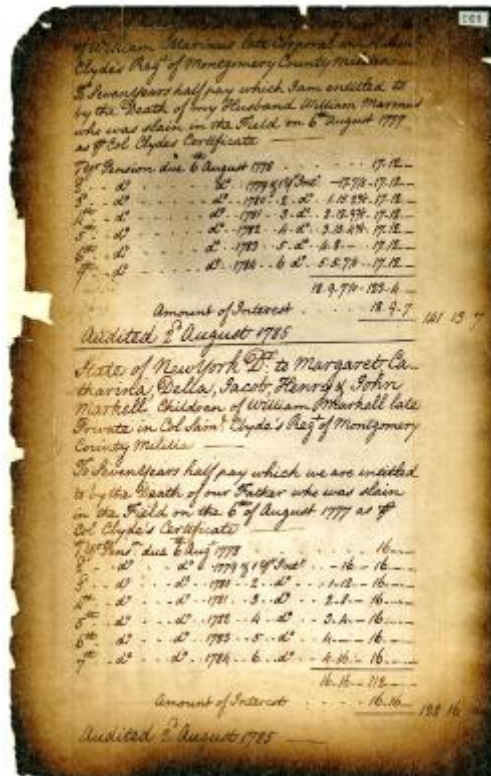 of William Marinus late Corporal in
Clyde's Regt of Montgomery County Militia
To Seven Years half pay which I am entitled to
by the Death of my Husband William Marinus
who was slain in the Field on 6th August 1777
as pr Col Clydes Certificate
1st Yrs Pension due 6th August 1778 17.12
2d do do 1779 & 1 Yrs Intt 17.7½ 17.12
3d do do 1780 2 do 17.12
4th do do 1781 3 do 17.12
5th do do 1782 4 do 17.12
6th do do 1783 5 do 4.8 17.12
7th do do 1784 6 do 5.5.7½ 17.12
18.9.7½ 123.4
Amount of Interest 18.9.7
141 13 7
Audited 2d August 1785
State of New York Dr to Margaret Ca-
tharina, Della, Jacob, Henry & John
Markell Children of William Markell late
Private in Col Saml Clyde's Regt of Montgomery
County Militia
To Seven Years half pay which we are entitled
to by the Death of our Father who was slain
in the Field on the 6th of August 1777 as pr
Col Clyde's Certificate
1st Yrs Pensn due 6th Aug 1778 16
2d do do 1779 & 1 Yrs Intt 16 16
3d do do 1780 2 do 1.12 16
4th do do 1781 3 do 2.8 16
5th do do 1782 4 do 3.4 16
6th do do 1783 5 do 4 16
7th do do 1784 6 do 4.16 16
16.16 112
Amount of Interest 16.16
128 16
Audited 2d August 1785